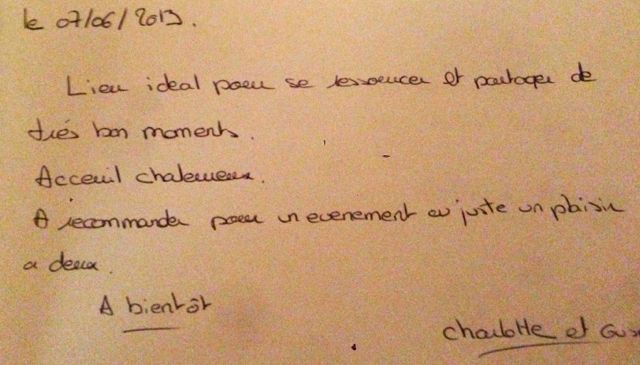 le 07/06/2013.
Lieu ideal pour se ressourcer et partager de
très bon moments.
Acceuil chaleureux.
A recommander pour un evenement ou juste un plaisir
a deux.
A bientôt
Charlotte et